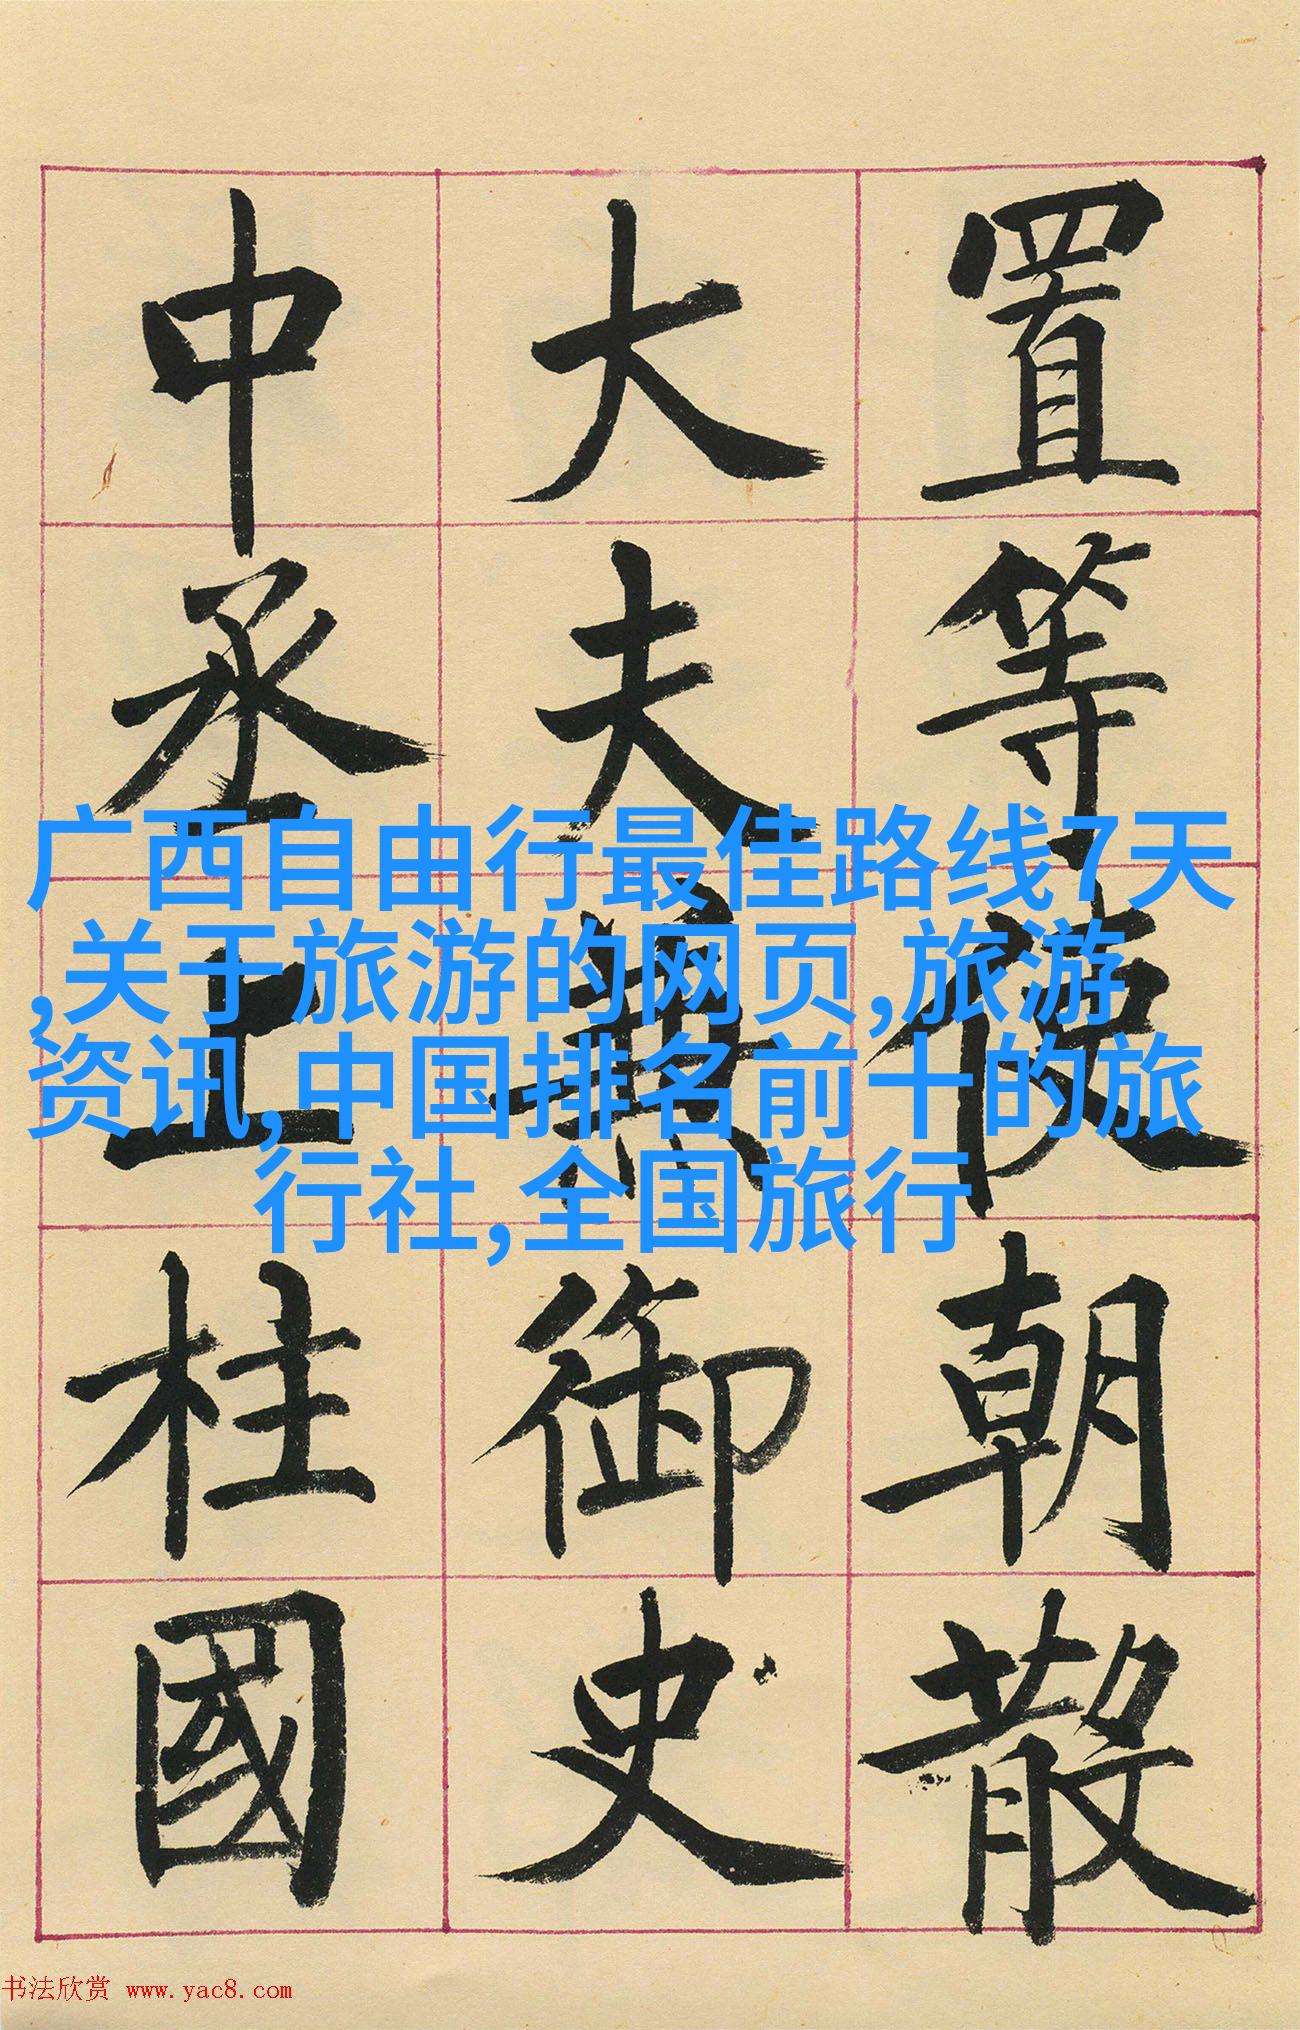 置等使朝散
大夫兼御史
中丞上柱國
广西自由行最佳路线7天
,关于旅游的网页,旅游
资讯,中国排名前十的旅
行社,全国旅行
书法欣赏 www.yac8.com